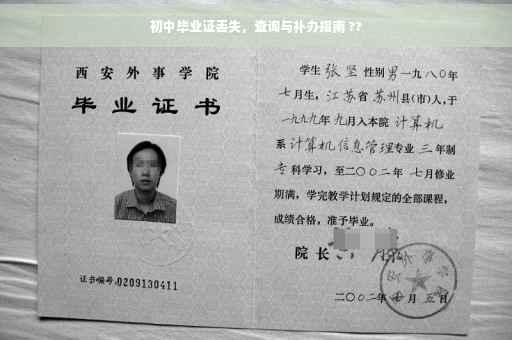 初中毕业证丢失，查询与补办指南 ??
西安外事学院
毕业证书
证书编号:0209130411
学生 张坚 性别 男 一九八〇年
七月生，江苏省 苏州县(市)人，于
一九九九年 九月入本院 计算机
系 计算机信息管理专业 三 年制
专科学习，至二〇〇二年 七月修业
期满，学完教学计划规定的全部课程，
成绩合格，准予毕业。
院长
二〇〇二年 月 五日